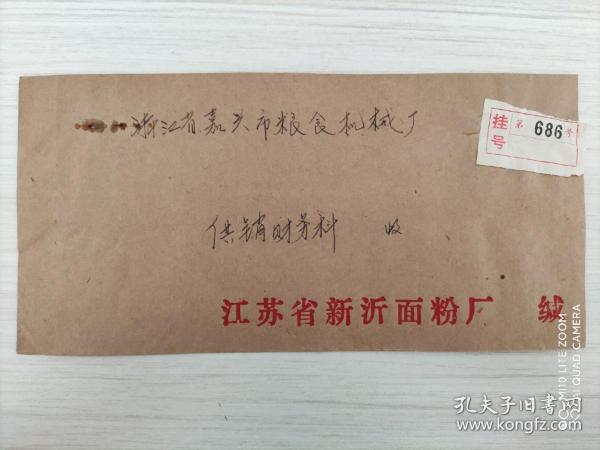 浙江省嘉兴市粮食机械厂
挂号 第 686 号
供销财务科 收
江苏省新沂面粉厂 缄
MI 10 LITE ZOOM
AI QUAD CAMERA
孔夫子旧书网
www.kongfz.com